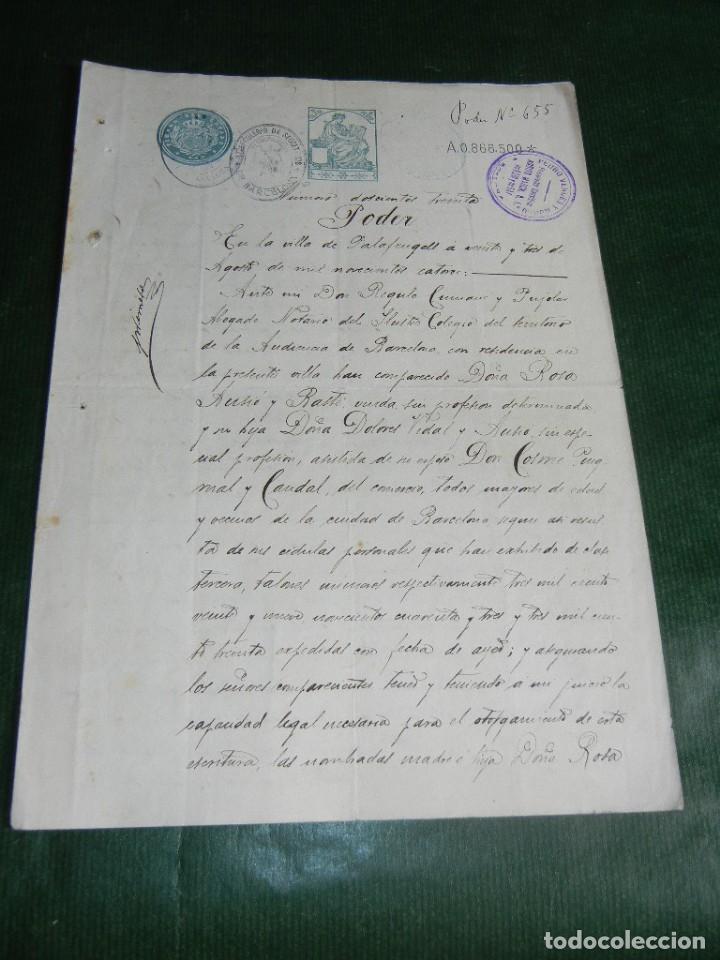 Poder Nº 655
A.0.868.500 *
BARCELONA
PEDRO
Numero doscientos treinta
Poder
En la villa de Palafrugell á veinte y tres de
Agosto, de mil novecientos catorce:
Ante mi Don Regulo Cumane y Pujolar
Abogado Notario del Ilustre Colegio del territorio
de la Audiencia de Barcelona con residencia en
la presente villa han comparecido Doña Rosa
y viuda, sin profesion determinada
y su hija Doña Dolores Vidal y sin espe-
cial profesion, asistida de su esposo Don Cosme Puig
mal y Caudal, del comercio, todos mayores de edad
y vecinos de la ciudad de Barcelona segun asi resul
ta de sus cédulas personales que han exhibido de clase
tercera, talones numeros respectivamente tres mil ciento
veinte y nueve novecientos cuarenta y tres y tres mil cien-
to treinta expedidas con fecha de ayer; y asegurando
los señores comparecientes tener y teniendo a mi juicio la
capacidad legal necesaria para el otorgamiento de esta
escritura, las nombradas madre é hija Doña Rosa
todocoleccion
todocoleccion.net